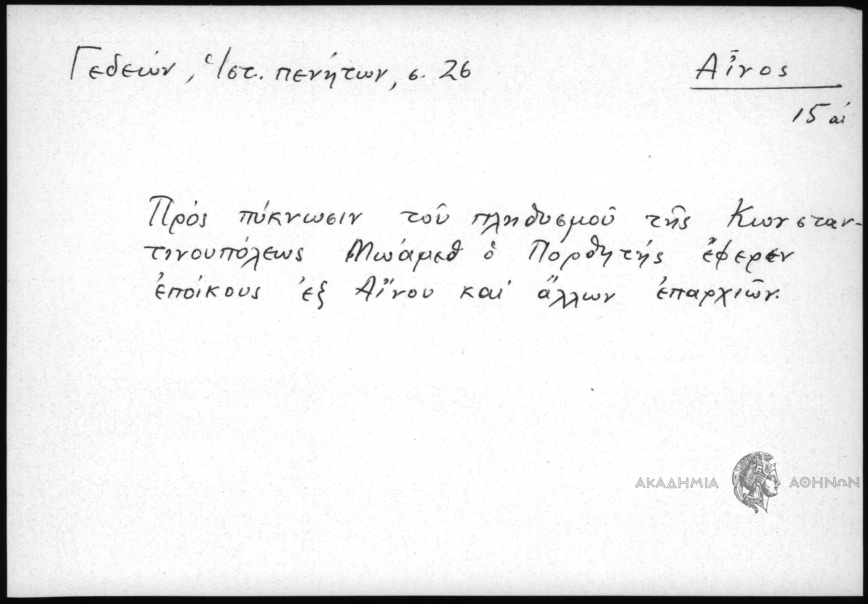 Γεδεών, Ἱστ. πενήτων, σ. 26
Αἶνος
15 αἰ
Πρὸς πύκνωσιν τοῦ πληθυσμοῦ τῆς Κωνσταν-
τινουπόλεως Μωάμεθ ὁ Πορθητής ἔφερεν
ἐποίκους ἐξ Αἴνου καὶ ἄλλων ἐπαρχιῶν.
ΑΚΑΔΗΜΙΑ ΑΘΗΝΩΝ